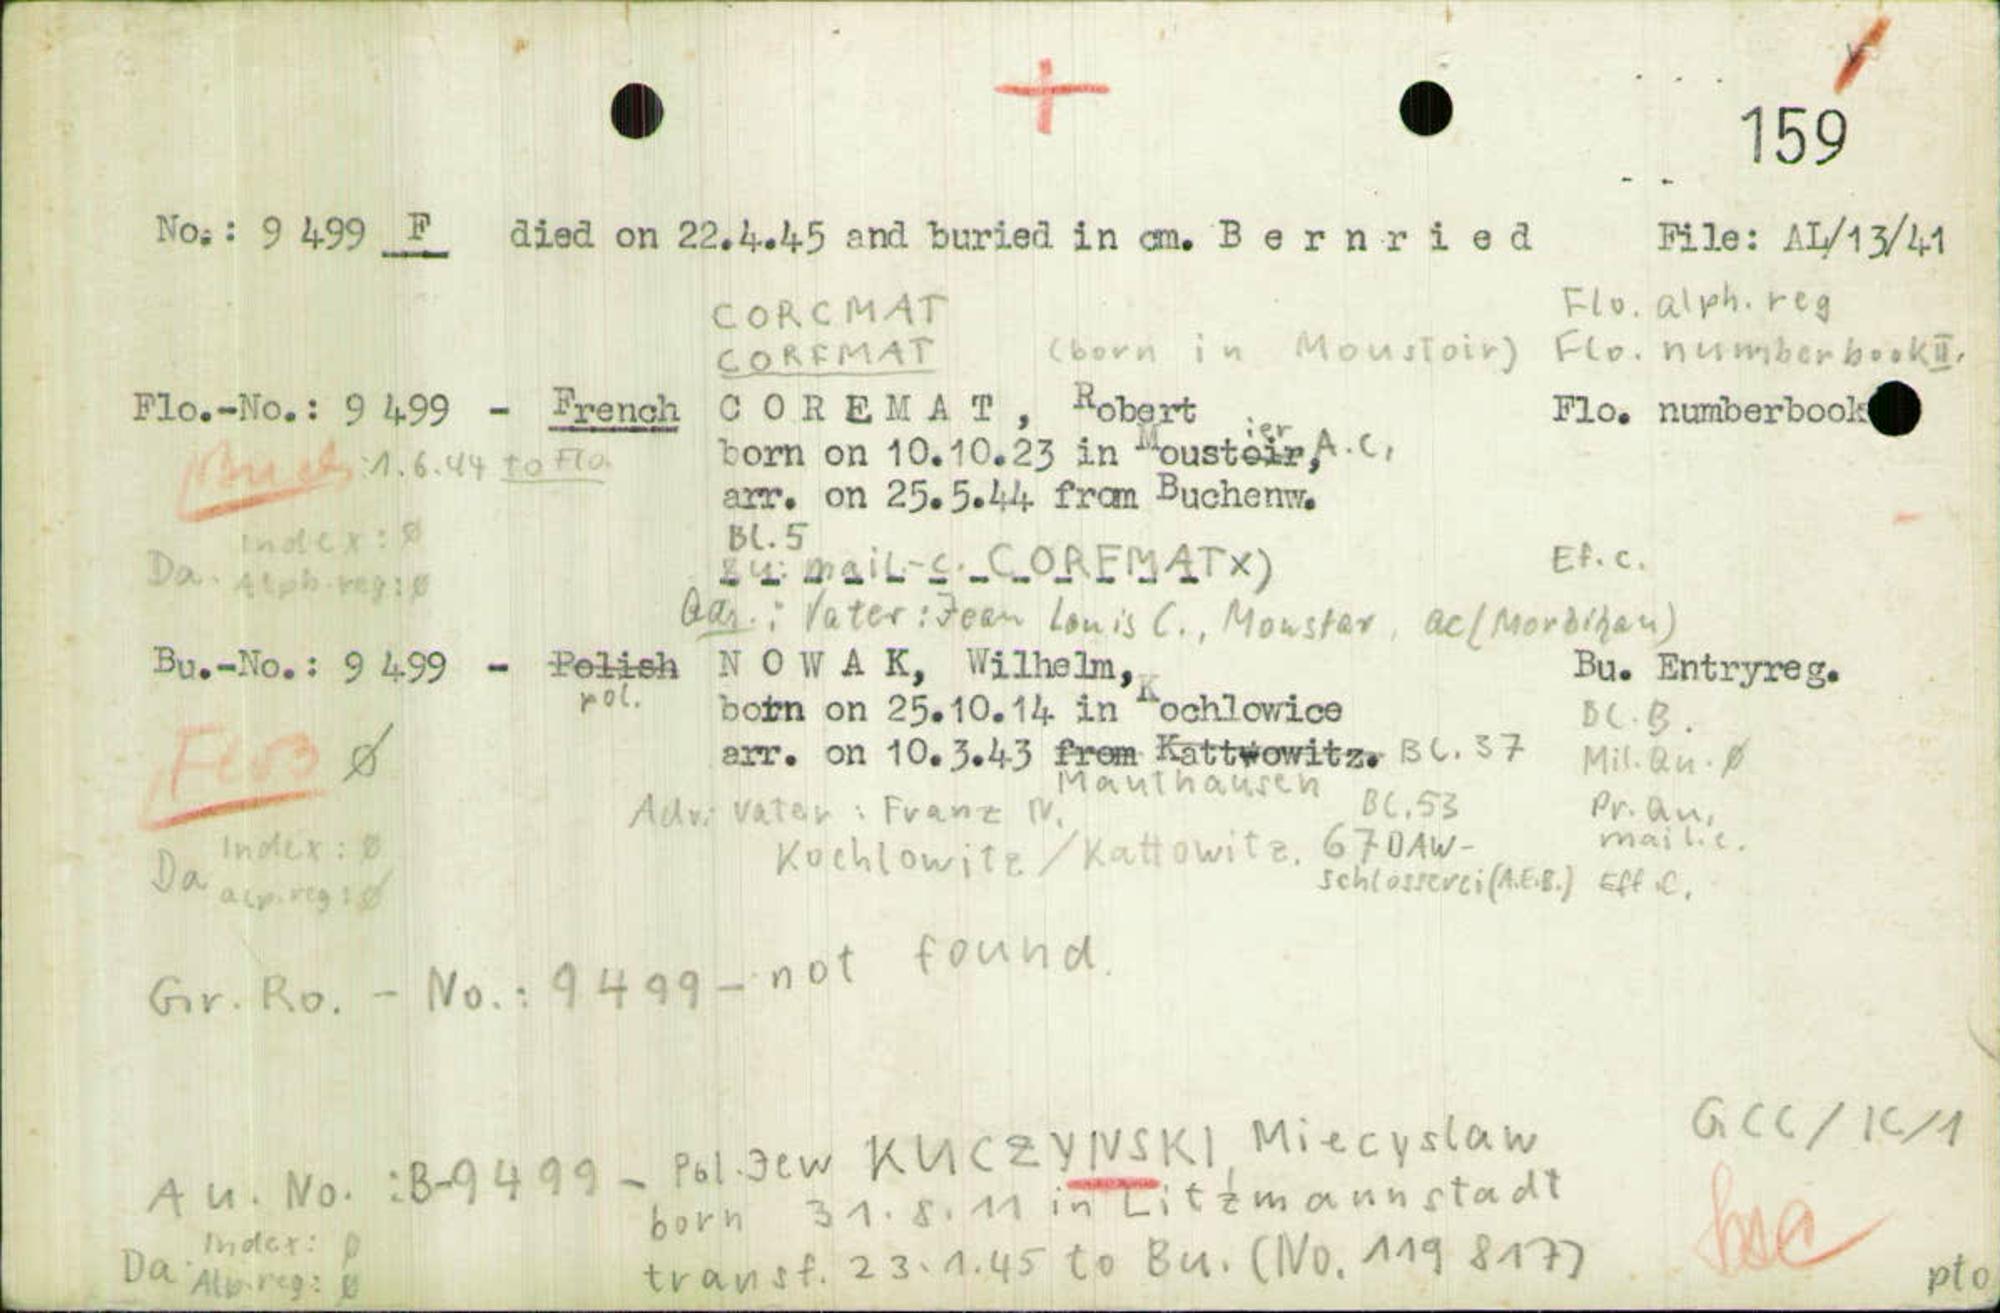 159
No.: 9 499 F died on 22.4.45 and buried in cm. B e r n r i e d File: AL/13/41
CORCMAT Flo. alph. reg
COREMAT (born in Moustoir) Flo. numberbook II.
Flo.-No.: 9 499 - French C O R E M A T , Robert Flo. numberbook
ier
born on 10.10.23 in Moustoir, A.C,
Buch: 1.6.44 to Flo.
arr. on 25.5.44 from Buchenw.
Index: Ø Bl. 5
Da. Alph. reg: Ø zu: mail-c. COREMAT x) Ef. c.
Adr.: Vater: Jean Louis C., Moustar, ac (Morbihan)
Bu.-No.: 9 499 - Polish N O W A K, Wilhelm, Bu. Entryreg.
pol. born on 25.10.14 in Kochlowice Bl. B.
Ø arr. on 10.3.43 from Kattwowitz. Bl. 37 Mil. Qu. Ø
Mauthausen
Adr: Vater: Franz N. Bl. 53 Pr. Qu,
Index: Ø Kochlowitz/Kattowitz. 67 DAW- mail.c.
Da alp. reg: Ø schlosserei (A.E.B.) Eff. C.
Gr. Ro. - No.: 9499 - not found.
GCC/IC/1
Au. No.: B-9499 - Pol. Jew KUCZYNSKI, Miecyslaw
born 31.8.11 in Litzmannstadt
Index: Ø
Da. Alp. reg: Ø transf. 23.1.45 to Bu. (No. 119 817)
pto